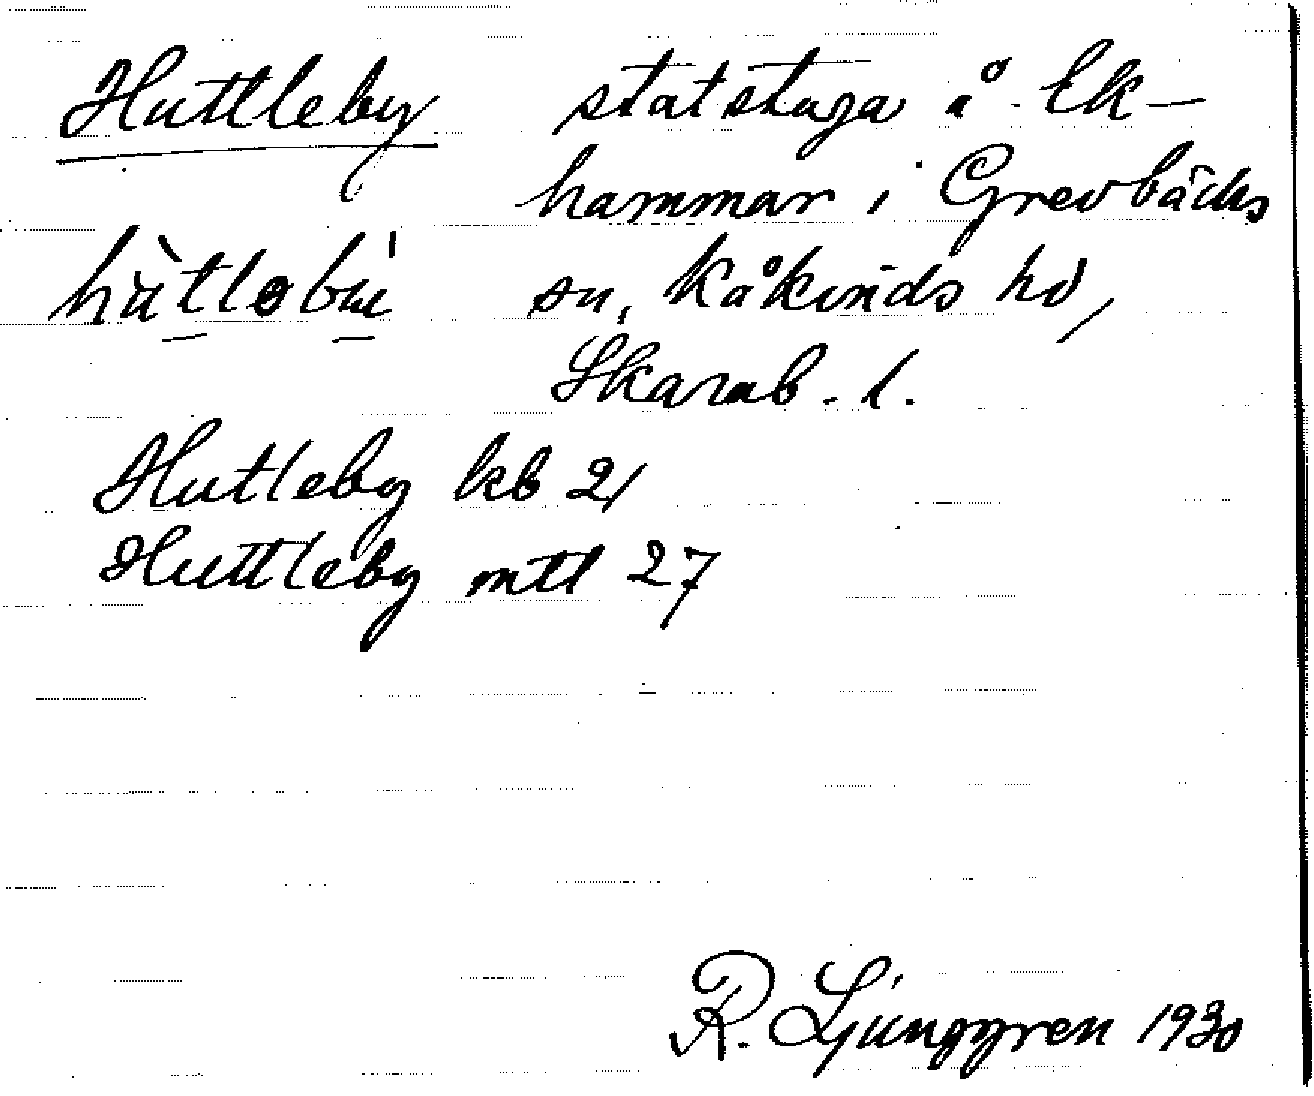 Huttleby statstuga å Ek-
hammar i Grevbäcks
hùtləbý sn, Kåkinds hd,
Skarab. l.
Hutleby kb 21
Huttleby mtl 27
R. Ljunggren 1930